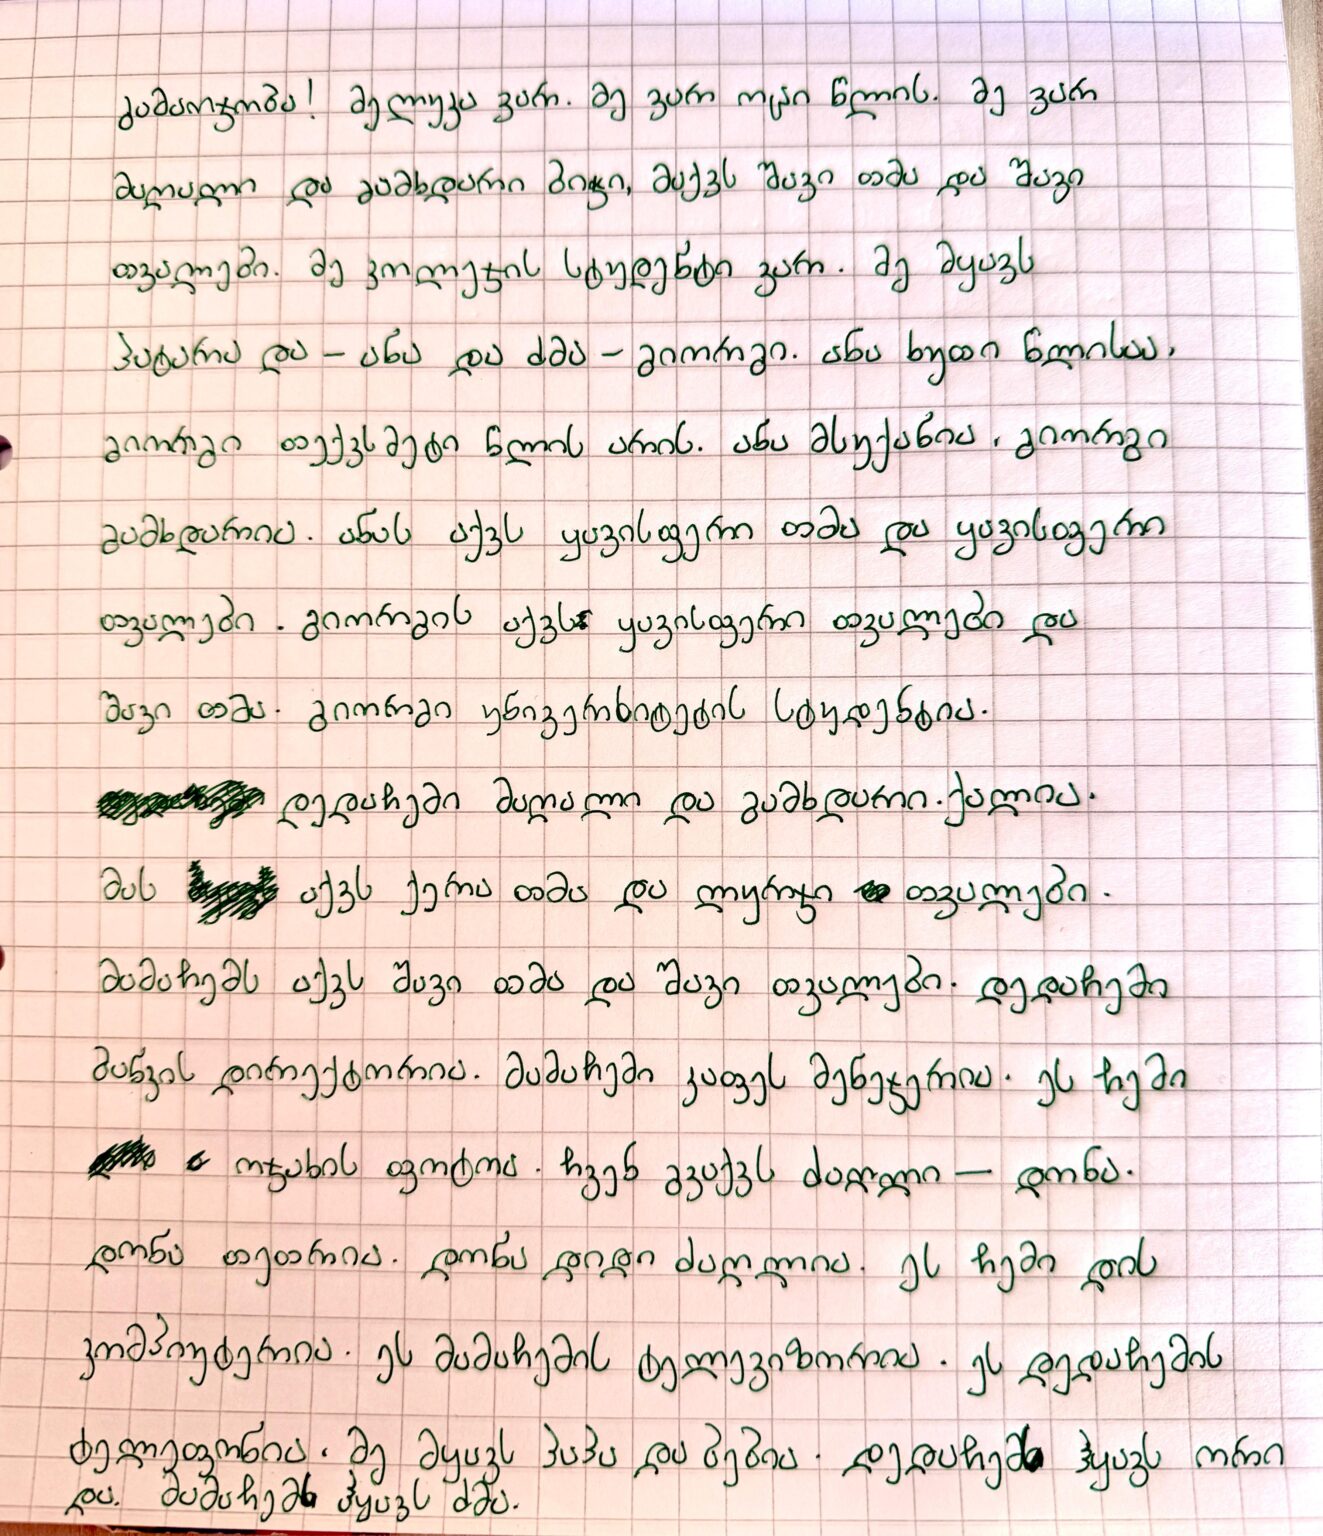 გამარჯობა! მე ლუკა ვარ. მე ვარ ოცი წლის. მე ვარ
მაღალი და გამხდარი ბიჭი, მაქვს შავი თმა და შავი
თვალები. მე კოლეჯის სტუდენტი ვარ. მე მყავს
პატარა და – ანა და ძმა – გიორგი. ანა ხუთი წლისაა.
გიორგი თექვსმეტი წლის არის. ანა მსუქანია. გიორგი
გამხდარია. ანას აქვს ყავისფერი თმა და ყავისფერი
თვალები. გიორგის აქვს ყავისფერი თვალები და
შავი თმა. გიორგი უნივერსიტეტის სტუდენტია.
დედაჩემი მაღალი და გამხდარი. ქალია.
მას აქვს ქერა თმა და ლურჯი თვალები.
მამაჩემს აქვს შავი თმა და შავი თვალები. დედაჩემი
ბანკის დირექტორია. მამაჩემი კაფეს მენეჯერია. ეს ჩემი
ოჯახის ფოტოა. ჩვენ გვაქვს ძაღლი – დონა.
დონა თეთრია. დონა დიდი ძაღლია. ეს ჩემი დის
კომპიუტერია. ეს მამაჩემის ტელევიზორია. ეს დედაჩემის
ტელეფონია. მე მყავს პაპა და ბებია. დედაჩემს ჰყავს ორი
და. მამაჩემს ჰყავს ძმა.